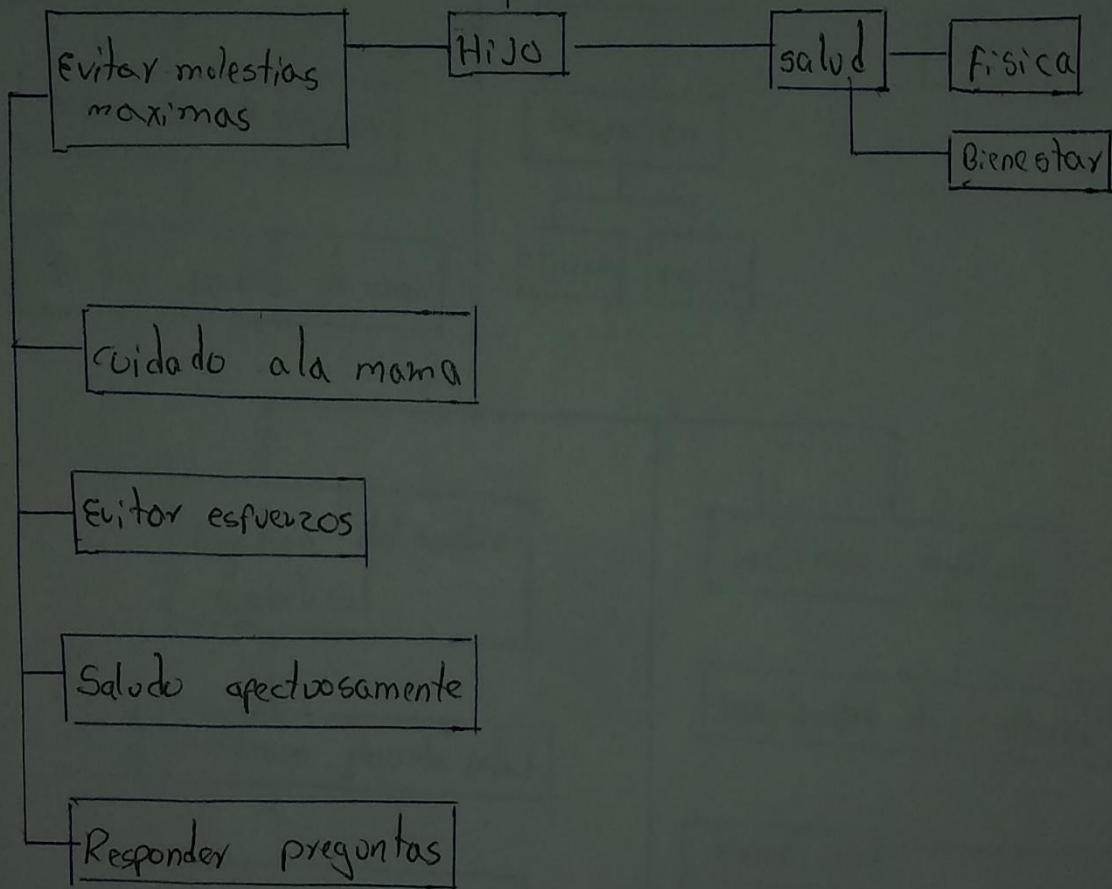 Evitar molestias
maximas
HiJO
salud
Fisica
Bienestar
cuidado ala mama
Evitar esfuerzos
Saludo afectuosamente
Responder preguntas